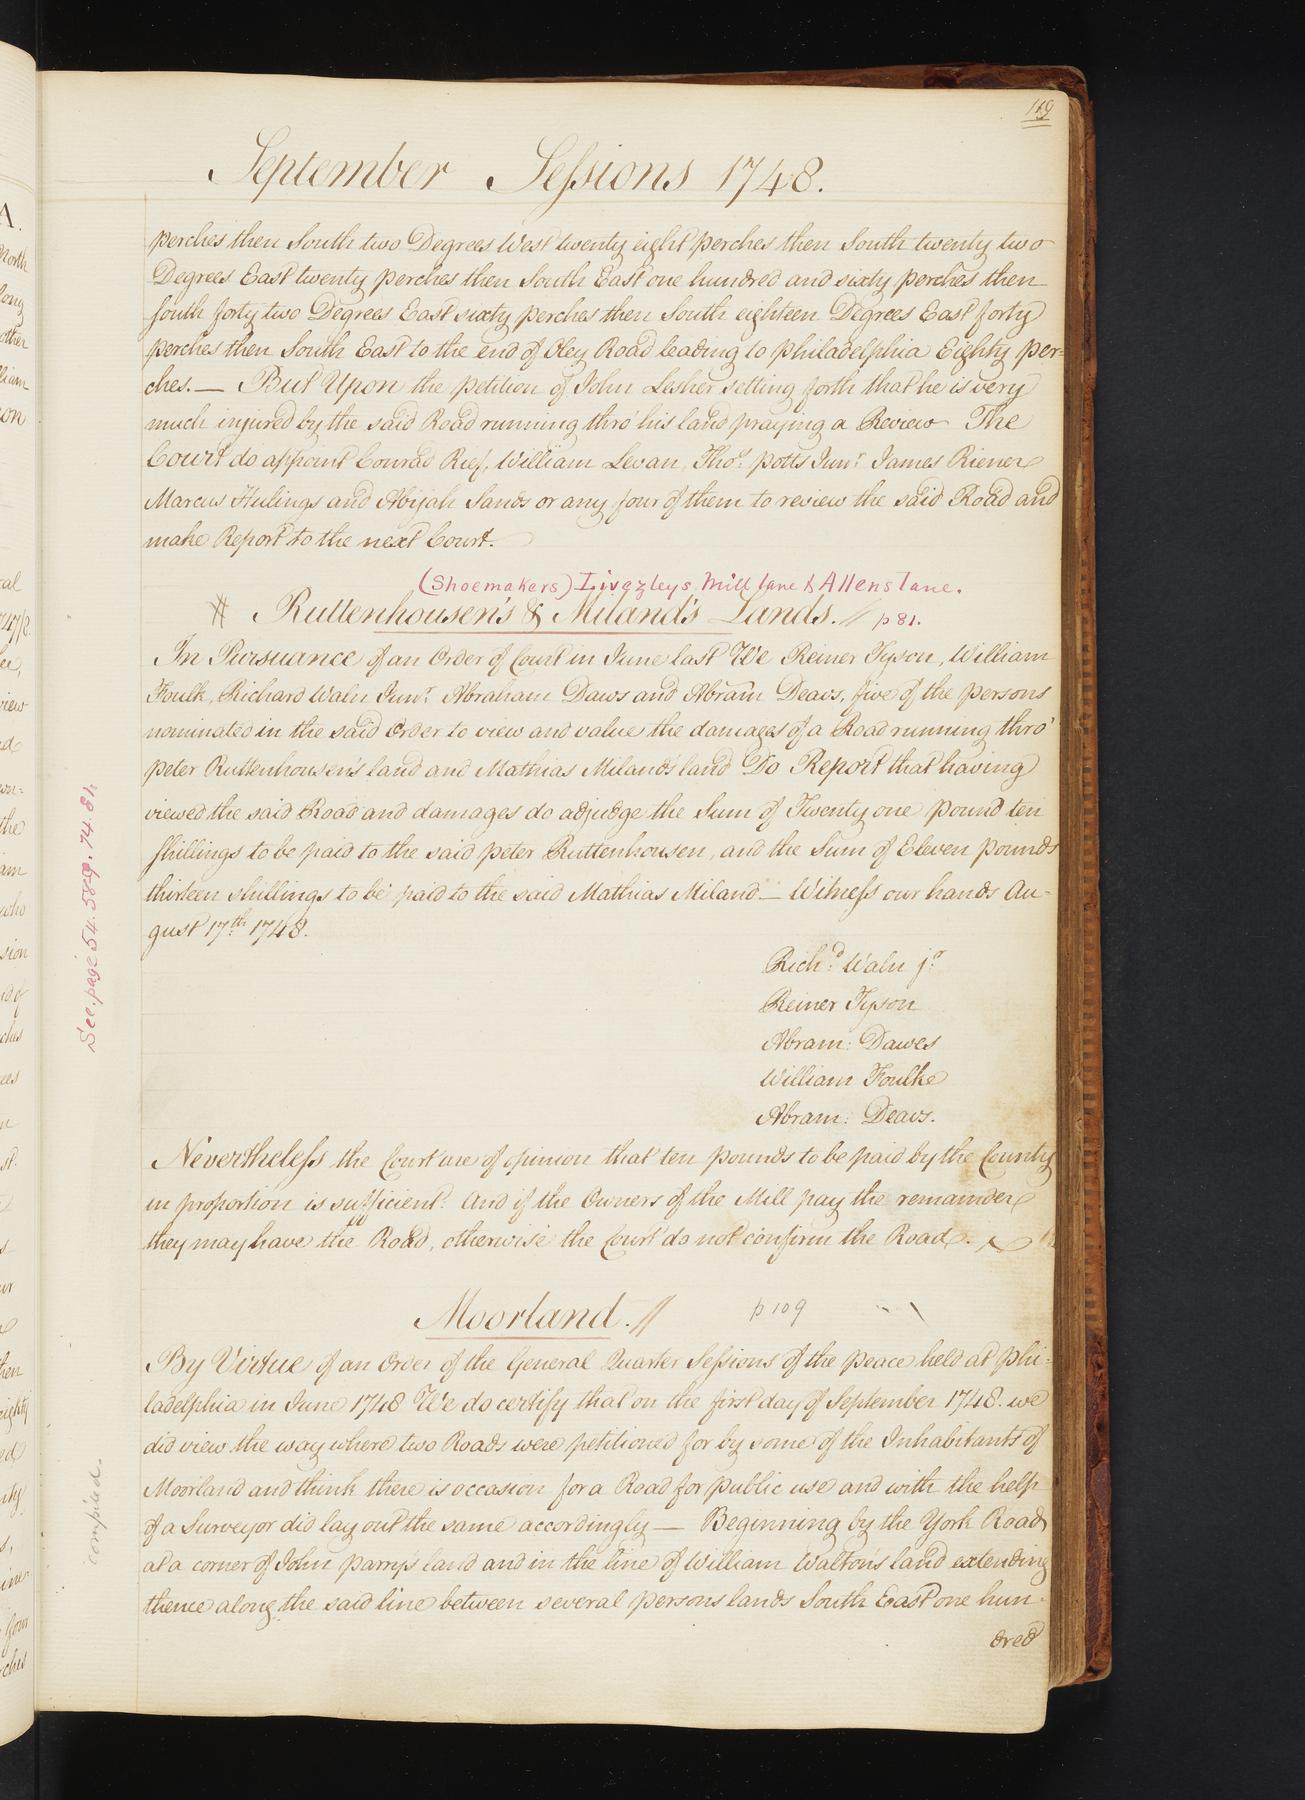 119
September Sessions 1748.
perches then South two Degrees West twenty eight perches then South twenty two
Degrees East twenty perches then South East one hundred and sixty perches then
South forty two Degrees East sixty perches then South eighteen Degrees East forty
perches then South East to the end of Oley Road leading to Philadelphia Eighty per=
ches. — But Upon the petition of John Lesher setting forth that he is very
much injured by the said Road running thro' his land praying a Review The
Court do appoint Conrad Rief, William Levan, Thos. Potts Junr. James Riener
Marcus Hulings and Abijah Sands or any four of them to review the said Road and
make Report to the next Court.
(Shoemakers) Livezleys Mill lane & Allens lane.
# Ruttenhousen's & Miland's Lands. // p 81.
In Pursuance of an Order of Court in June last We Reiner Tyson, William
Foulk, Richard Waln Junr. Abraham Daws and Abram Deavs, five of the persons
nominated in the said Order to view and value the damages of a Road running thro'
Peter Ruttenhousen's land and Mathias Miland's land Do Report that having
viewed the said Road and damages do adjudge the Sum of Twenty one pound ten
shillings to be paid to the said Peter Ruttenhousen, and the Sum of Eleven pounds
thirteen shillings to be paid to the said Mathias Miland — Witness our hands Au=
gust 17th. 1748.
Richd. Waln jr.
Reiner Tyson
Abram: Dawes
William Foulke
Abram: Deavs.
Nevertheless the Court are of opinion that ten pounds to be paid by the County
in proportion is sufficient: And if the Owners of the Mill pay the remainder
they may have the Road, otherwise the Court do not confirm the Road.
See page 54. 589. 74. 81.
Moorland. // p 109
By Virtue of an Order of the General Quarter Sessions of the peace held at Phi=
ladelphia in June 1748 We do certify that on the first day of September 1748. we
did view the way where two Roads were petitioned for by some of the Inhabitants of
Moorland and think there is occasion for a Road for public use and with the help
of a Surveyor did lay out the same accordingly — Beginning by the York Road
at a corner of John Parry's land and in the line of William Walton's land extending
thence along the said line between several persons lands South East one hun=
dred